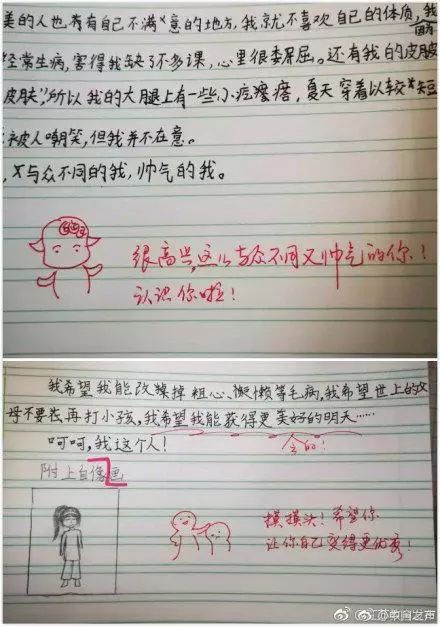 美的人也有有自己不满意的地方,我就不喜欢自己的体质,我
经常生病,害得我缺了不多课,心里很委屈。还有我的皮肤
皮肤”,所以我的大腿上有一些小疙瘩瘩,夏天穿着以较短
被人嘲笑,但我并不在意。
与众不同的我,帅气的我。
很高兴,这么与众不同又帅气的你!
认识你啦!
我希望我能改掉粗心、懒等毛病,我希望世上的父
母不要再打小孩,我希望我能获得更美好的明天……
会的!
呵呵,我这个人!
附上自像画
摸摸头!希望你
让你自己变得更优秀!
@江苏教育发布